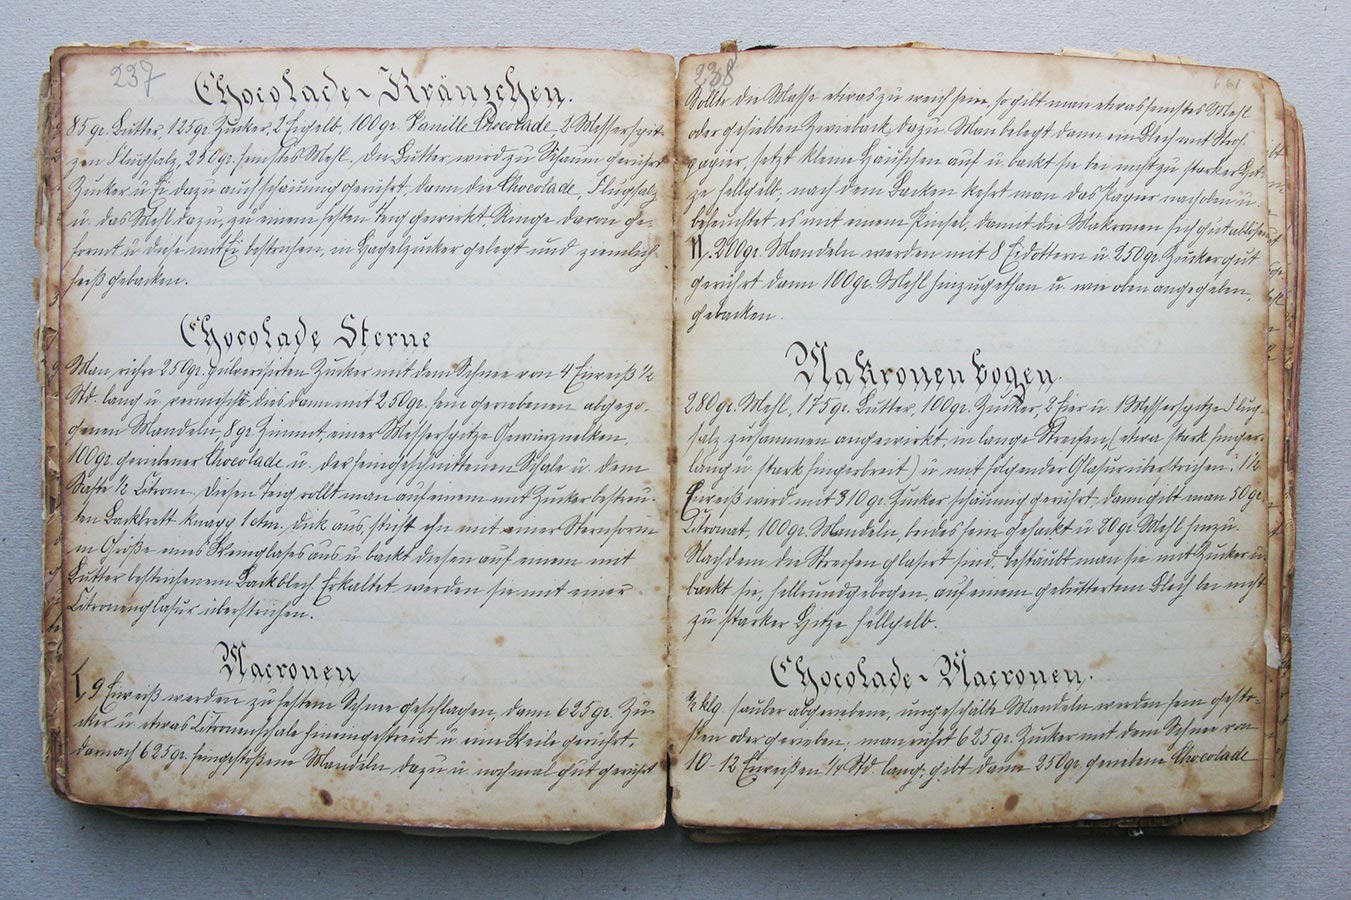 237
Chocolade-Kränzchen.
85 gr. Butter, 125 gr. Zucker, 2 Eigelb, 100 gr. Vanille Chocolade, 2 Messerspit-
zen Flugsalz, 250 gr. feinstes Mehl. Die Butter wird zu Schaum gerührt
Zucker u. Ei dazu auch schaumig gerührt, dann die Chocolade, Flugsalz
u. das Mehl dazu, zu einem festen Teig gewirkt. Ringe davon ge-
formt u. diese mit Ei bestrichen, in Hagelzucker gelegt und ziemlich
heiß gebacken.
Chocolade Sterne
Man rühre 250 gr. pulverisirten Zucker mit dem Schnee von 4 Eiweiß 1/2
Std. lang u. vermischt dies dann mit 250 gr. fein geriebenen abgezo-
genen Mandeln, 8 gr Zimmt, einer Messerspitze Gewürznelken,
100 gr. geriebener Chocolade u. der feingeschnittenen Schale u. dem
Safte 1/2 Citron. Diesen Teig rollt man auf einem mit Zucker bestreu-
ten Backbrett knapp 1 ctm. dick aus, sticht ihn mit einer Sternform
in Größe eines Weinglases aus u. backt diesen auf einem mit
Butter bestrichenem Backblech. Erkaltet werden sie mit einer
Citronenglasur überstrichen.
Macronen
I, 9 Eiweiß werden zu festem Schnee geschlagen, dann 625 gr. Zu-
cker u. etwas Citronenschale hineingestreut u. eine Weile gerührt,
darnach 625 gr. feingestoßene Mandeln dazu u. nochmal gut gerührt
238
661
Sollte die Masse etwas zu weich sein, so gibt man etwas feinstes Mehl
oder gesiebten Zwieback dazu. Man belegt dann ein Blech mit Stroh-
papier, setzt kleine Häufchen auf u. backt sie bei nicht zu starker Hit-
ze hellgelb, nach dem Backen kehrt man das Papier nach oben u.
befeuchtet es mit einem Pinsel, damit die Makronen sich gut ablösen
II. 200 gr. Mandeln werden mit 8 Eidottern u. 250 gr. Zucker gut
gerührt dann 100 gr. Mehl hinzugethan u. wie oben angegeben,
gebacken.
Makronenbogen.
280 gr. Mehl, 175 gr. Butter, 100 gr. Zucker, 2 Eier u. 1 Messerspitze Flug-
salz zusammen angewirkt, in lange Streifen (etwa stark finger-
lang u. stark fingerbreit) u. mit folgender Glasur überstrichen: 1 1/2
Eiweiß wird mit 310 gr. Zucker schaumig gerührt, dann gibt man 50 gr.
Citronat, 100 gr. Mandeln, beides fein gehackt u. 20 gr Mehl hinzu.
Nachdem die Streifen glasirt sind, bestäubt man sie mit Zucker u.
backt sie, halbrund gebogen, auf einem gebutterten Blech bei nicht
zu starker Hitze hellgelb.
Chocolade-Macronen.
1/2 klg. sauber abgeriebene, ungeschälte Mandeln werden fein gesto-
ßen oder gerieben, man rührt 625 gr. Zucker mit dem Schnee von
10-12 Eiweißen 1/4 Std. lang, gibt dann 250 gr. geriebene Chocolade